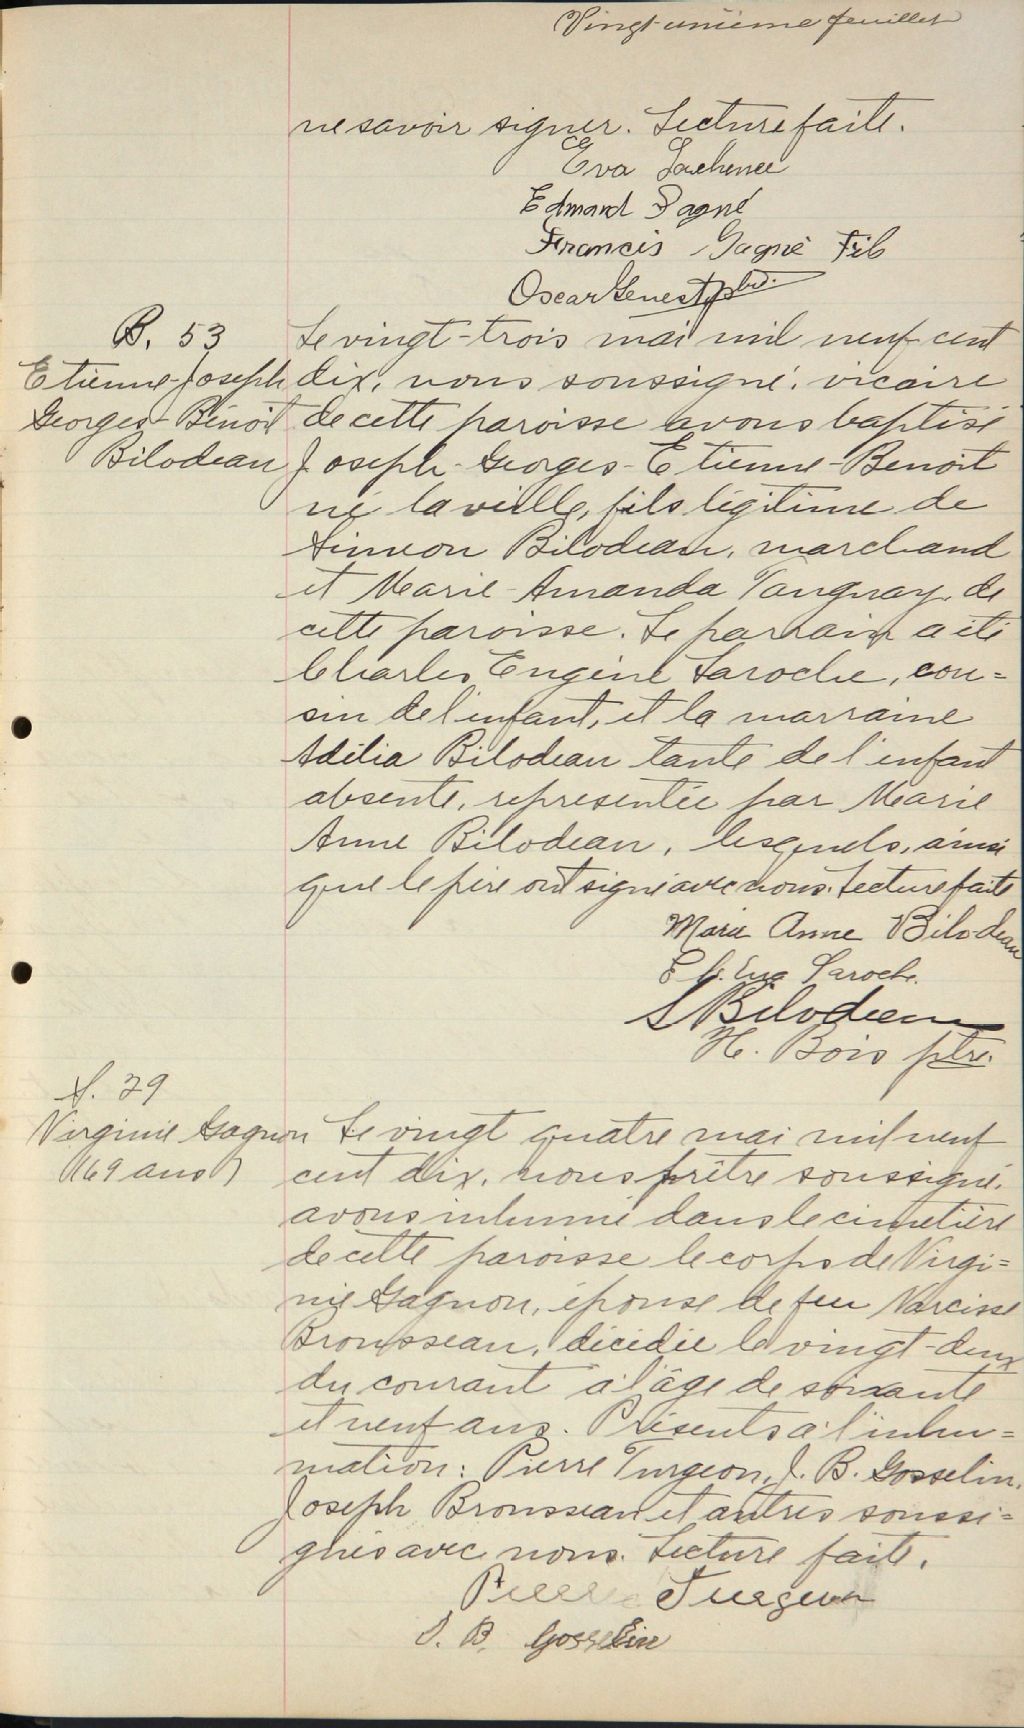 Vingt-unième feuillet
ne savoir signer. Lecture faite.
Eva Lachance
Edmond Gagné
Francis Gagné Fils
Oscar Genest ptre.
B. 53
Etienne-Joseph
Georges-Benoit
Bilodeau
Le vingt-trois mai mil neuf cent
dix, nous soussigné, vicaire
de cette paroisse avons baptisé
Joseph-Georges-Etienne-Benoit
né la veille, fils légitime de
Siméon Bilodeau, marchand
et Marie-Amanda Tanguay, de
cette paroisse. Le parrain a été
Charles Eugène Laroche, cou=
sin de l'enfant, et la marraine
Adélia Bilodeau tante de l'enfant
absente, représentée par Marie
Anne Bilodeau, lesquels, ainsi
que le père ont signé avec nous. Lecture faite
Marie Anne Bilodeau
Laroche.
S Bilodeau
H. Bois ptre.
S. 29
Virginie Gagnon
(69 ans)
Le vingt quatre mai mil neuf
cent dix, nous prêtre soussigné,
avons inhumé dans le cimetière
de cette paroisse le corps de Virgi=
nie Gagnon, épouse de feu Narcisse
Brousseau, décédée le vingt-deux
du courant à l'âge de soixante
et neuf ans. Présents à l'inhu=
mation: Pierre Turgeon, J. B. Gosselin,
Joseph Brousseau et autres soussi=
gnés avec nous. Lecture faite.
Pierre Turgeon
J. B. Gosselin